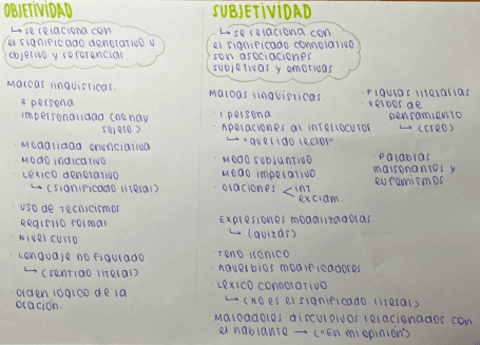 OBJETIVIDAD
↳ se relaciona con
el significado denotativo u
objetivo y referencial
Marcas lingüísticas.
· 3 persona
· Impersonalidad (no hay
sujeto)
· Modalidad enunciativa
· Modo indicativo
· Léxico denotativo
↳ (significado literal)
· Uso de tecnicismos
· Registro formal
· Nivel culto
· Lenguaje no figurado
↳ (sentido literal)
Orden lógico de la
oración.
SUBJETIVIDAD
↳ se relaciona con
el significado connotativo
son asociaciones
subjetivas y emotivas
Marcas lingüísticas.
· 1 persona
· Apelaciones al interlocutor
↳ "querido lector"
· Modo subjuntivo
· Modo imperativo
· Oraciones < int.
exclam.
Expresiones modalizadoras
↳ (quizás)
· Tono irónico
· Adverbios modificadores
· Léxico connotativo
↳ (No es el significado literal)
Marcadores discursivos relacionados con
el hablante → ("En mi opinión")
· Figuras literarias
· Verbos de
pensamiento
↳ (creo)
· Palabras
malsonantes y
eufemismos